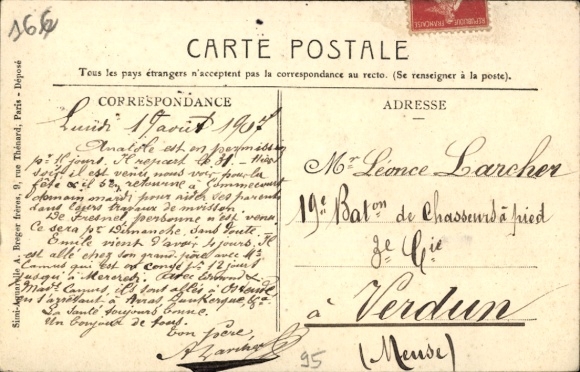 166
CARTE POSTALE
Tous les pays étrangers n'acceptent pas la correspondance au recto. (Se renseigner à la poste).
Simi-Aquarelle A. Breger frères, 9, rue Thénard, Paris - Déposé
CORRESPONDANCE
Lundi 19 août 1907
Anatole est en permission
pr 18 jours. Il repart le 31 - Hier
soir il est venu nous voir pour la
fête & il s'en retourne à Gommecourt
demain mardi pour aider ses parents
dans leurs travaux de moisson
De Fresnel, personne n'est venu
Ce sera pr Dimanche, sans doute.
Emile vient d'avoir jours. Il
est allé chez son grand père avec Mr
Camus qui est en congé pr 12 jours
jusqu'à Mercredi. Avec
Made Camus, ils sont allés à Ostende
en s'arrêtant à Arras, Dunkerque, &a
La Santé toujours bonne.
Un bonjour de tous.
ton père
A Larcher
ADRESSE
Mr Léonce Larcher
19e Baton de Chasseurs à pied
3e Cie
à Verdun
(Meuse)
95